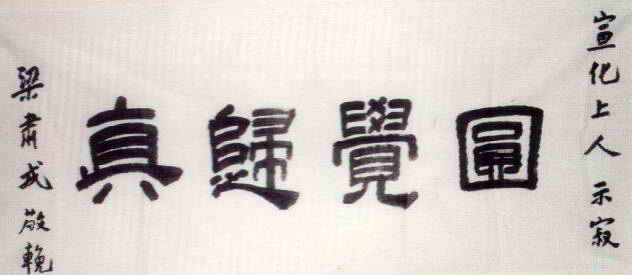 宣化上人 示寂
圓覺歸真
梁肅戎 敬輓